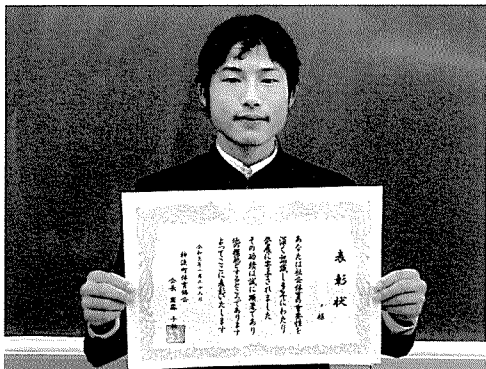 表彰状
様
あなたは社会体育の重要性を
深く認識し多年にわたり
発展に寄与されました
その功績は誠に顕著であり
他の模範とするところであります
よってここに表彰いたします
令和
町体育協会
会長